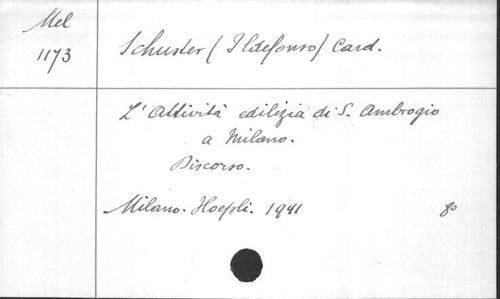 Mel
1173
Schuster (Ildefonso) Card.
L'Attività edilizia di S. Ambrogio
a Milano.
Discorso.
Milano. Hoepli. 1941 8º